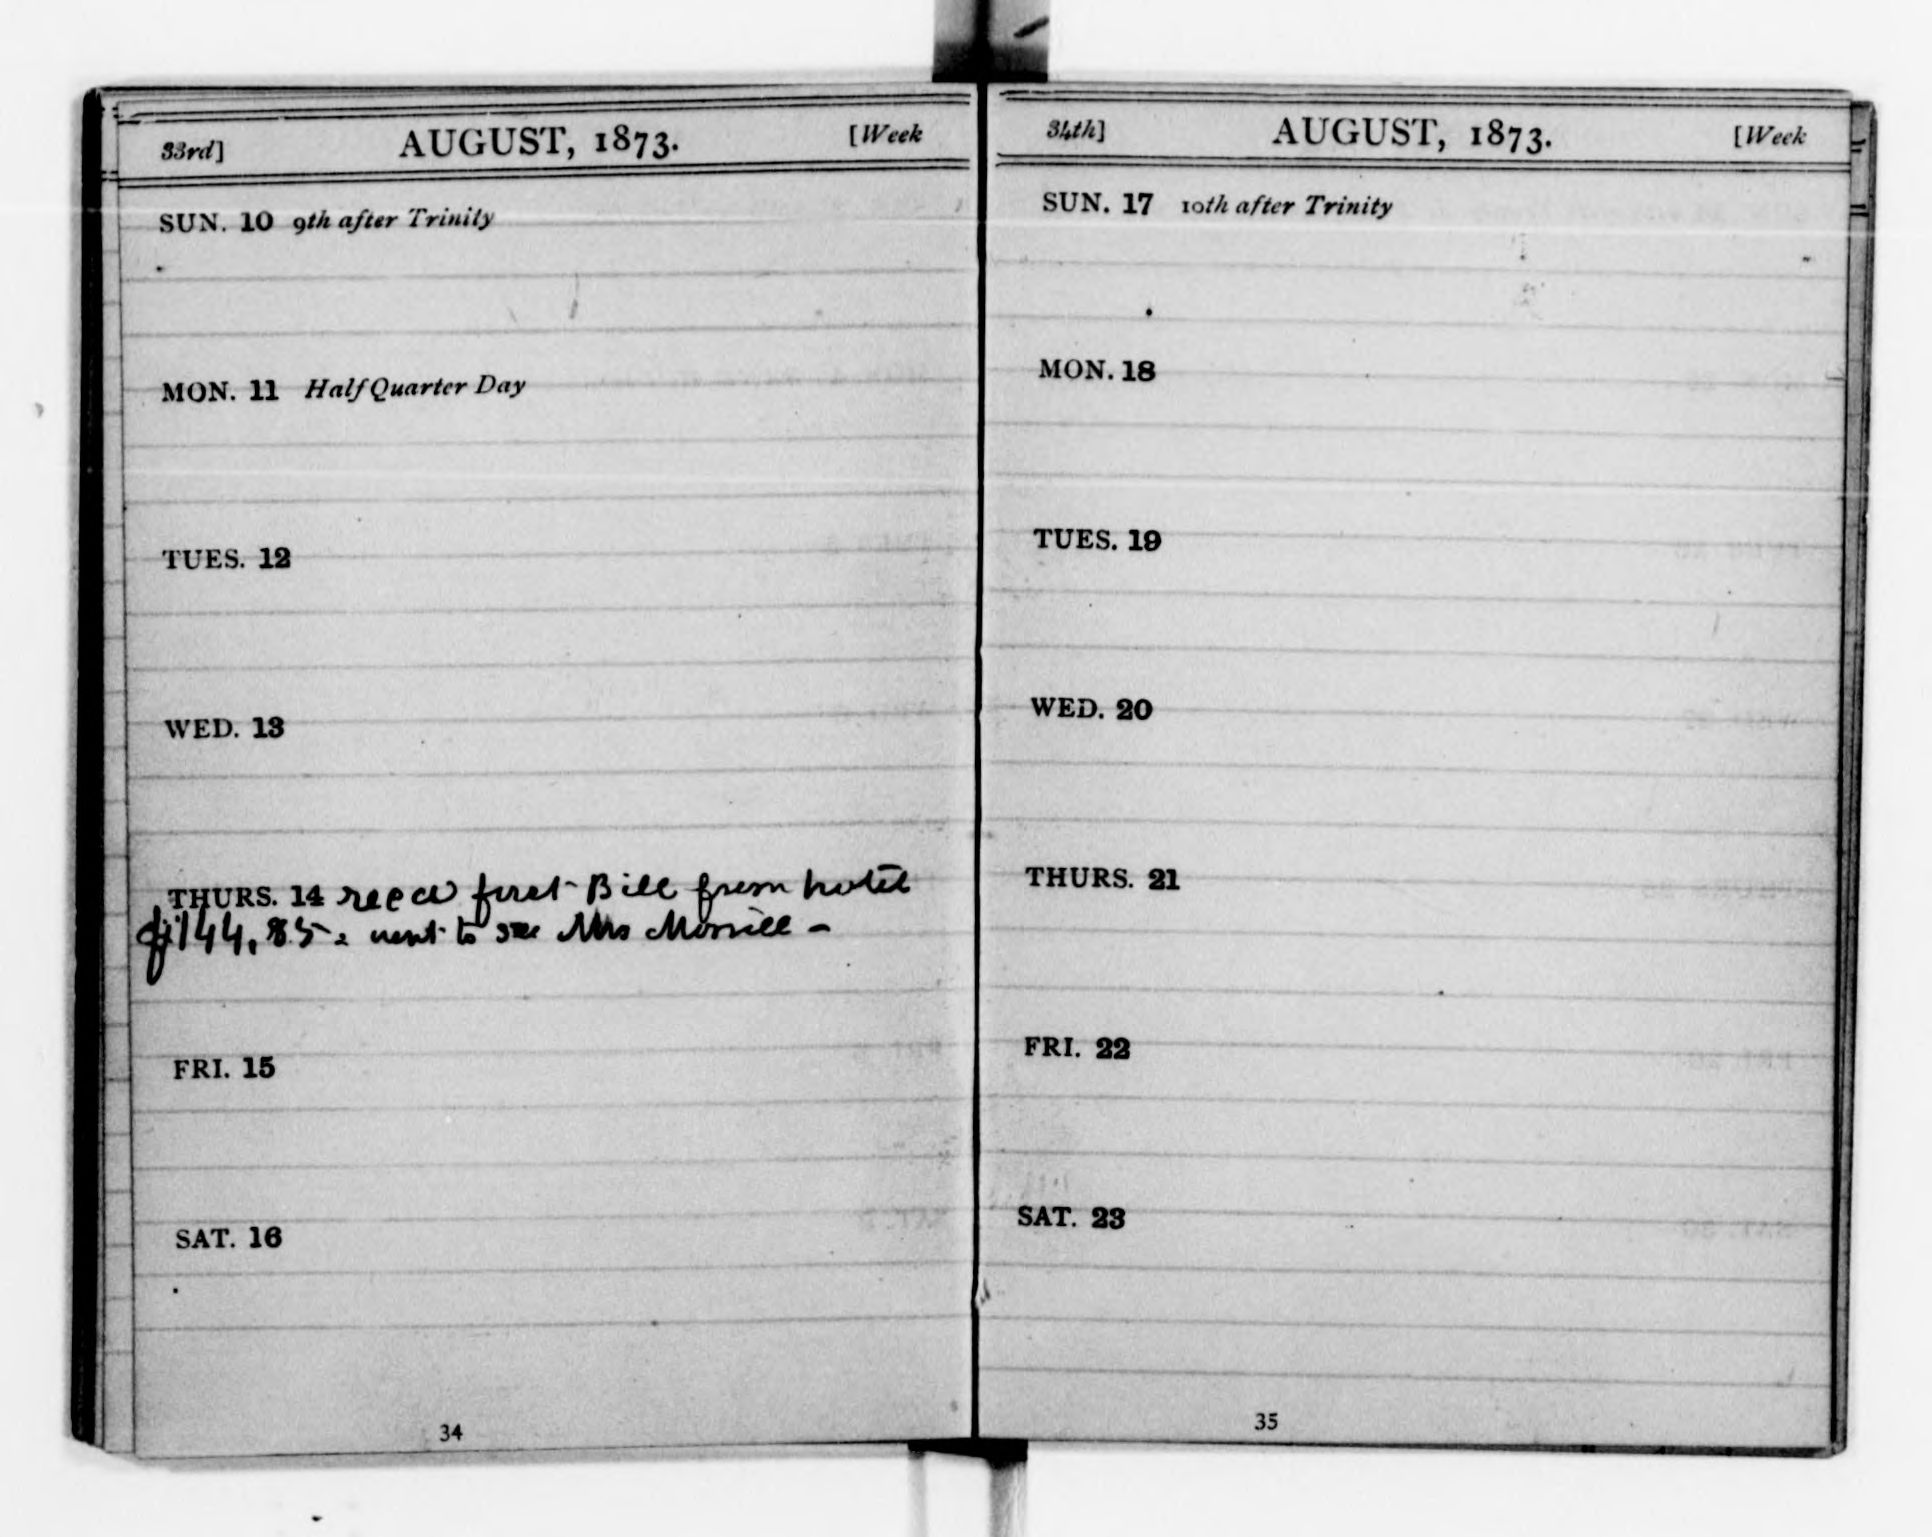 33rd] AUGUST, 1873. [Week
SUN. 10 9th after Trinity
MON. 11 Half Quarter Day
TUES. 12
WED. 13
THURS. 14 recd first Bill from hotel
144,85 - went to see Mrs Morrill -
FRI. 15
SAT. 16
34
34th] AUGUST, 1873. [Week
SUN. 17 10th after Trinity
MON. 18
TUES. 19
WED. 20
THURS. 21
FRI. 22
SAT. 23
35